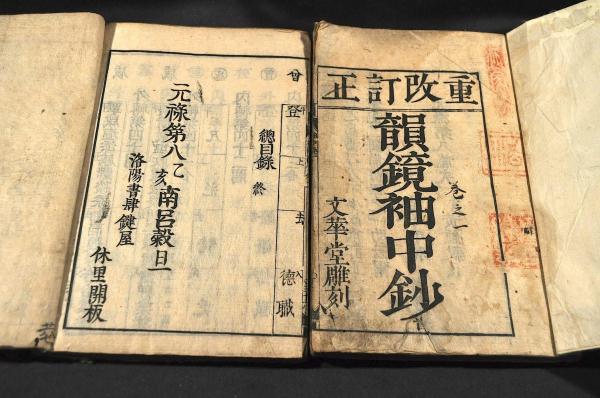 重改訂正
卷之一
韻鏡袖中鈔
文華堂雕刻
曾 登 德 職
總目錄 終
元祿第八乙亥南呂穀旦
洛陽書肆鍵屋
休里開板